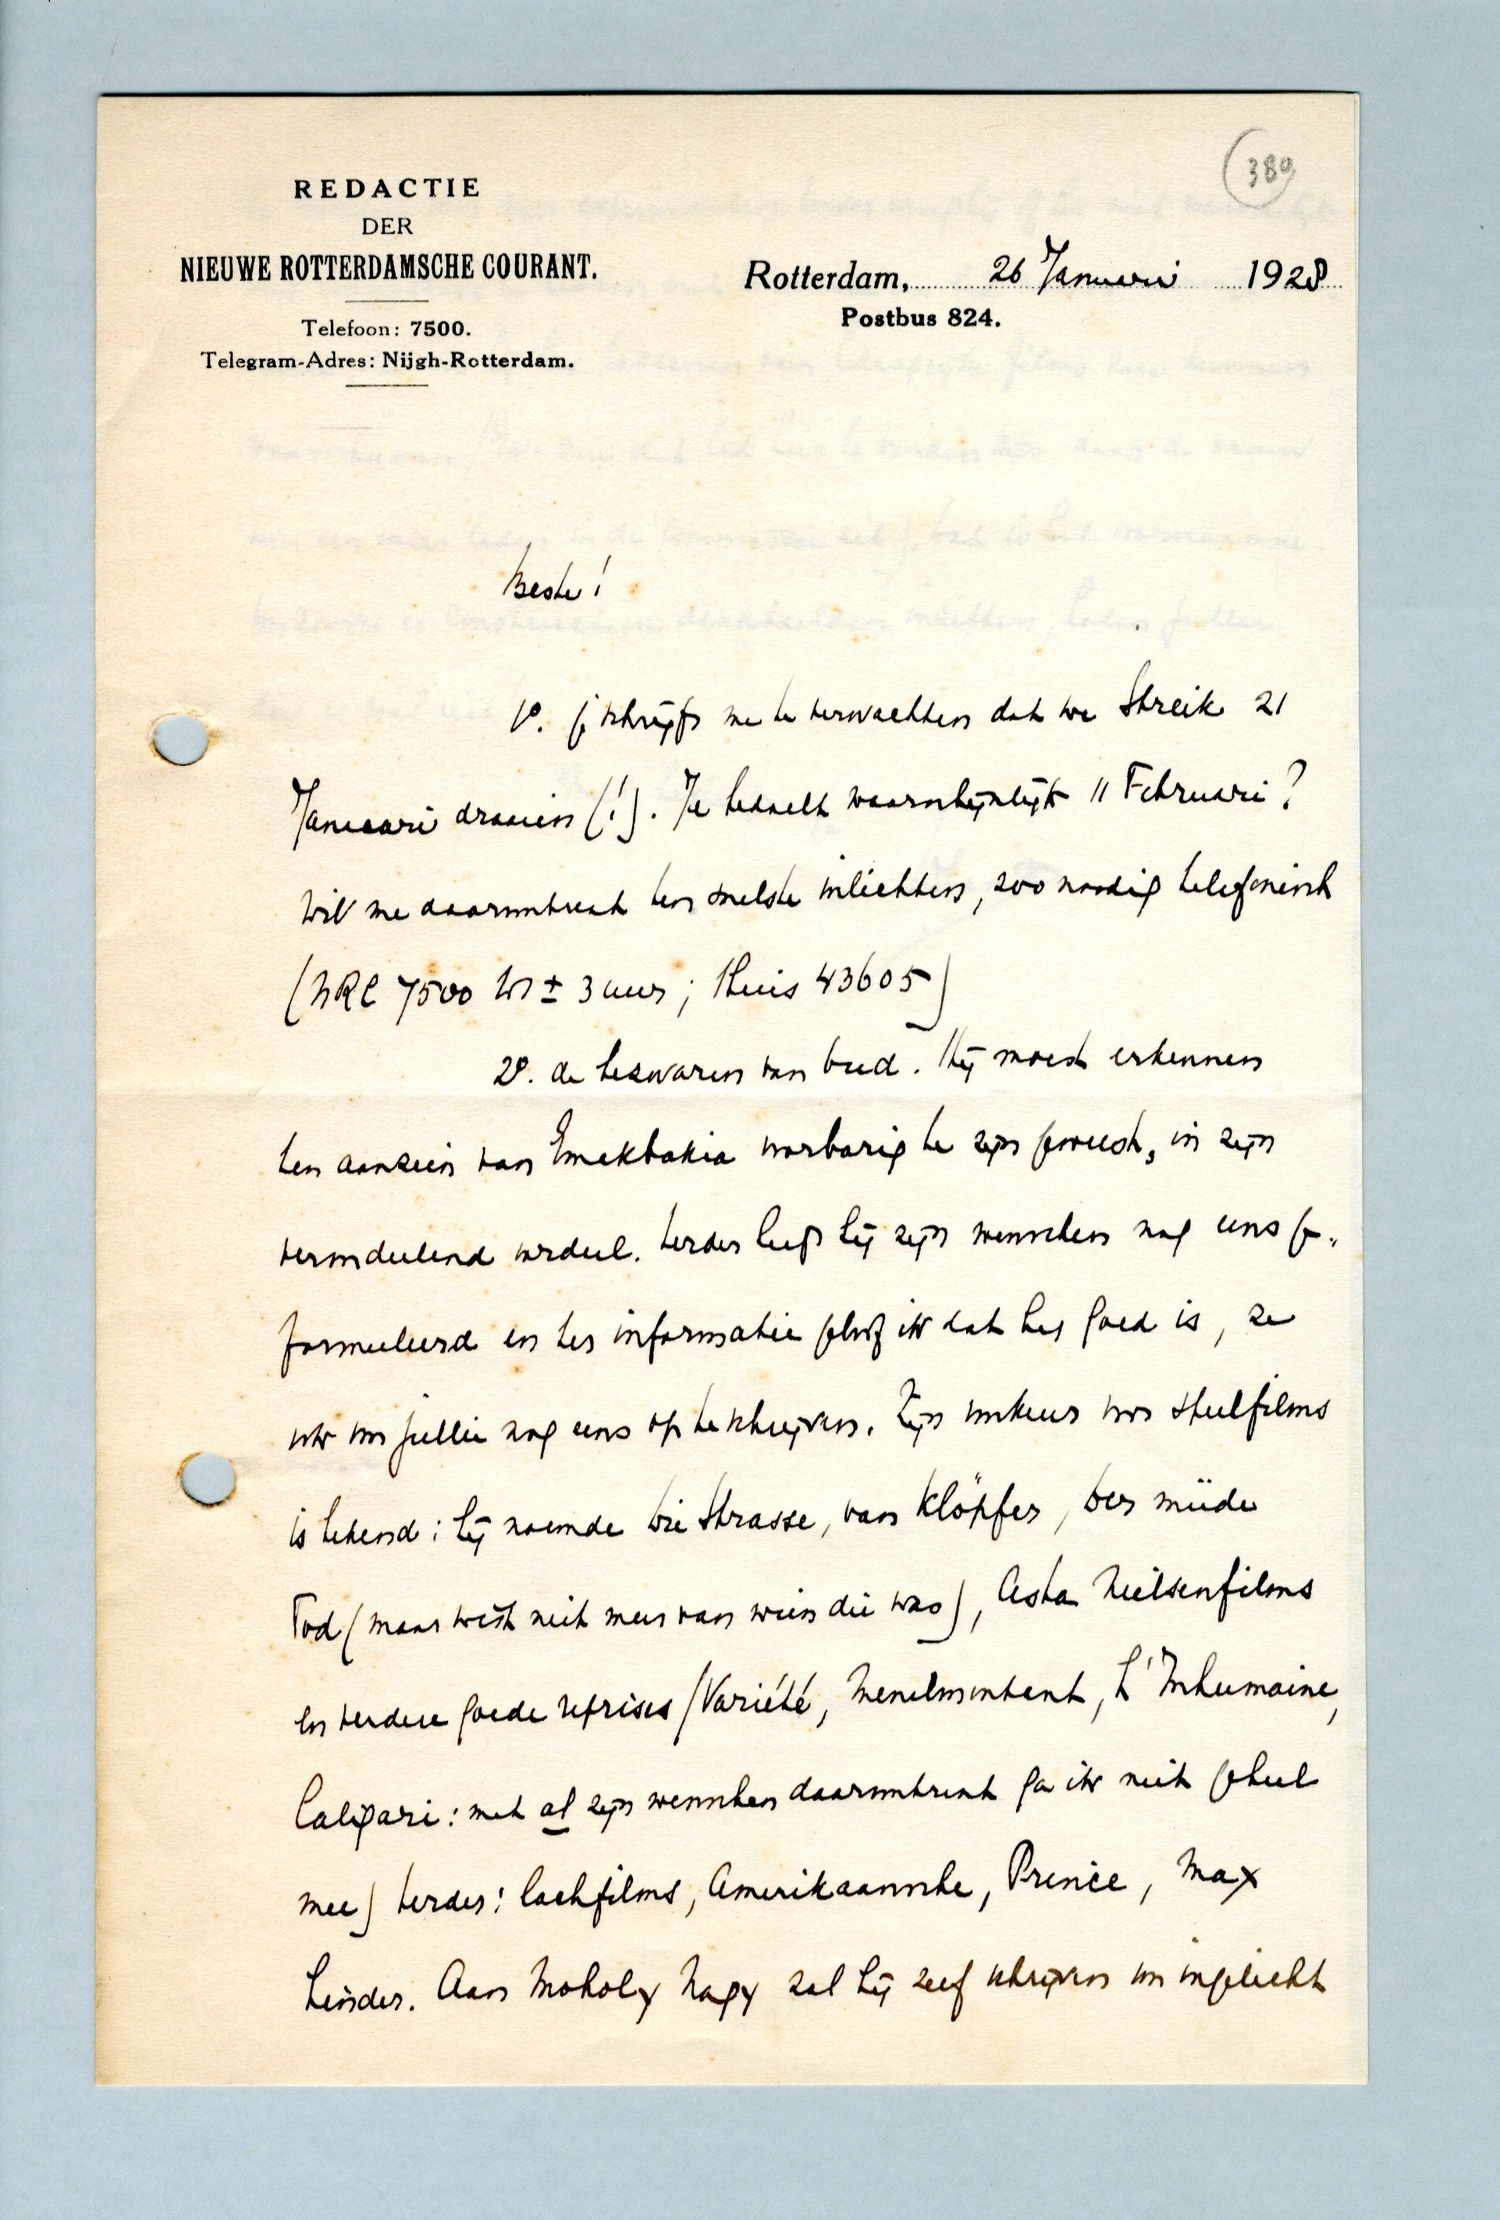 389
REDACTIE
DER
NIEUWE ROTTERDAMSCHE COURANT.
Telefoon: 7500.
Telegram-Adres: Nijgh-Rotterdam.
Rotterdam, 26 Januari 1928
Postbus 824.
Beste!
1º. je schrijft me te verwachten dat we Streik 21
Januari draaien (!). Je bedoelt waarschijnlijk 11 Februari?
Wil me daaromtrent ten snelste inlichten, zoo noodig telefonisch
(NRC 7500 tot ± 3 uur; thuis 43605)
2º. de bezwaren van Oud. Hij moest erkennen
ten aanzien van Emakbakia voorbarig te zijn geweest, in zijn
veroordeelend oordeel. Verder heeft hij zijn wenschen nog eens ge-
formuleerd en ter informatie geloof ik dat het goed is, ze
ook om jullie nog eens op te schrijven. Zijn voorkeur voor speelfilms
is bekend: hij noemde Die Strasse, van Klöpfer, Der müde
Tod (maar wist niet meer van wien die was), Asta Nielsenfilms
en verdere goede reprises (Variété, Menilmontant, L'Inhumaine,
Caligari: met al zijn wenschen daaromtrent ga ik niet geheel
mee) Verder: lachfilms, Amerikaansche, Prince, Max
Linder. Aan Moholy Nagy zal hij zelf schrijven om ingelicht